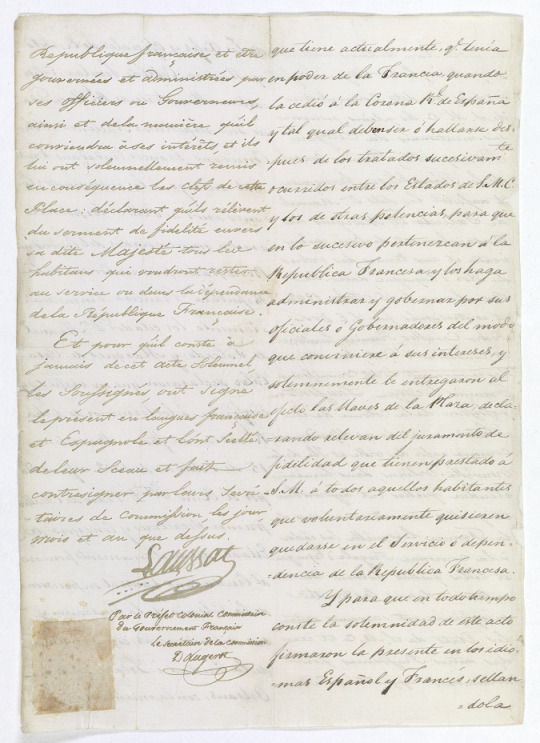 Republique française et être
gouvernées et administrées par
ses officiers ou Gouverneurs,
ainsi et de la manière qu'il
conviendra à ses intérêts et ils
lui ont solennellement remis
en conséquence les clefs de cette
Place; déclarant qu'ils relèvent
du serment de fidelité envers
sa dite Majesté tous les
habitans qui voudront rester
au service ou dans la dépendance
de la République Française.
Et pour qu'il conste à
jamais de cet acte Solemnel,
les Soussignés, ont signé
le présent en langues française
et Espagnole et l'ont scellé
de leur Sceau et fait
contresigner par leurs Secré-
taires de Commission les jour
mois et an que dessus.
Laussat
Par le Préfet colonial Commissaire
du Gouvernement Français
le secrétaire de la commission
Daugerot
que tiene actualmente, qe. tenia
en poder de la Francia, quando
la cedió á la Corona Rl. de España
y tal qual deben ser ó hallarse des-
pues de los tratados sucesivamte.
ocurridos entre los Estados de S.M.C.
y los de otras potencias, para que
en lo sucesivo pertenezcan á la
Republica Francesa, y los haga
administrar y gobernar por sus
oficiales ó Gobernadores del modo
que conviniere á sus intereses, y
solemnemente le entregaron al
efecto las llaves de la Plaza, decla-
rando relevan del juramento de
fidelidad que tienen prestado á
S.M. á todos aquellos habitantes
que voluntariamente quisieren
quedarse en el Servicio ó depen-
dencia de la Republica Francesa.
Y para que en todo tiempo
conste la solemnidad de este acto
firmaron la presente en los idio-
mas Español y Francés, sellan
dola